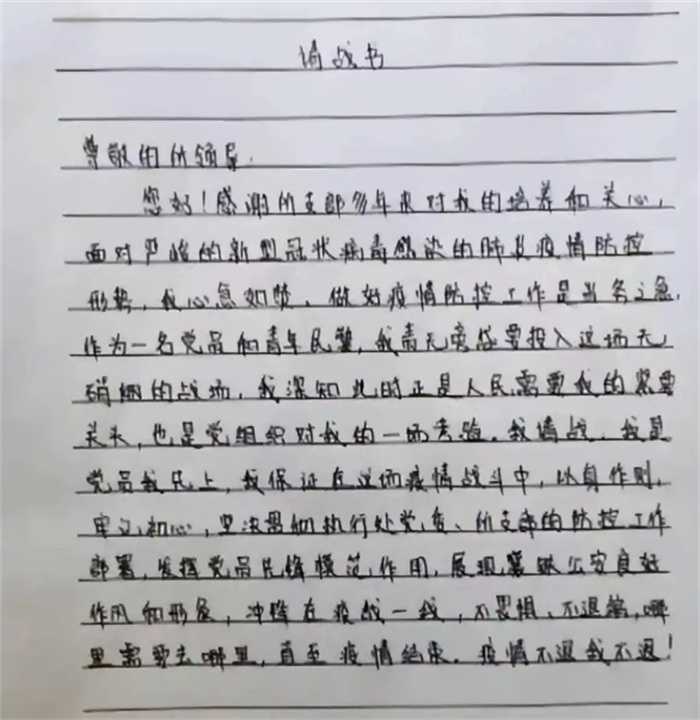 请战书
尊敬的所领导.
您好！感谢所支部多年来对我的培养和关心，
面对严峻的新型冠状病毒感染的肺炎疫情防控
形势，我心急如焚、做好疫情防控工作是当务之急.
作为一名党员和青年民警，我责无旁贷要投入这场无
硝烟的战场，我深知此时正是人民需要我的紧要
关头，也是党组织对我的一场考验。我请战，我是
党员我先上，我保证在这场疫情战斗中，以身作则，
牢记初心，坚决贯彻执行处党委、所支部的防控工作
部署，发挥党员先锋模范作用，展现襄铁公安良好
作风和形象，冲锋在疫战一线，不畏惧、不退缩，哪
里需要去哪里，直至疫情结束。疫情不退我不退！